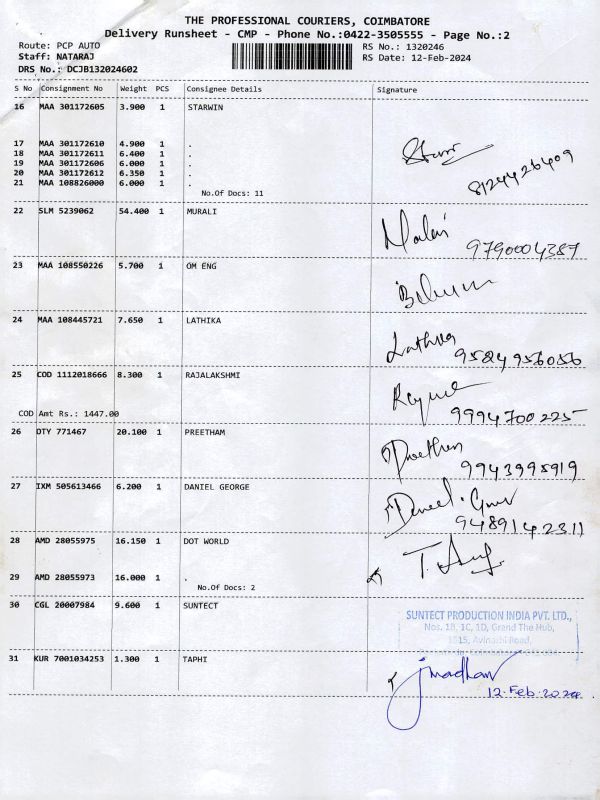 THE PROFESSIONAL COURIERS, COIMBATORE
Delivery Runsheet - CMP - Phone No.:0422-3505555 - Page No.:2
Route: PCP AUTO RS No.: 1320246
Staff: NATARAJ RS Date: 12-Feb-2024
DRS No.: DCJB132024602
S No Consignment No Weight PCS Consignee Details Signature
16 MAA 301172605 3.900 1 STARWIN
17 MAA 301172610 4.900 1 .
18 MAA 301172611 6.400 1 .
19 MAA 301172606 6.000 1 .
20 MAA 301172612 6.350 1 .
21 MAA 108826000 6.000 1 .
8124426409
No.Of Docs: 11
22 SLM 5239062 54.400 1 MURALI
9790004387
23 MAA 108550226 5.700 1 OM ENG
24 MAA 108445721 7.650 1 LATHIKA
9524956056
25 COD 1112018666 8.300 1 RAJALAKSHMI
9994700225
COD Amt Rs.: 1447.00
26 OTY 771467 20.100 1 PREETHAM
Preethem
9943995919
27 IXM 505613466 6.200 1 DANIEL GEORGE
9489142311
28 AMD 28055975 16.150 1 DOT WORLD
29 AMD 28055973 16.000 1 .
No.Of Docs: 2
30 CGL 20007984 9.600 1 SUNTECT
SUNTECT PRODUCTION INDIA PVT. LTD.,
Nos. 1B, 1C, 1D, Grand The Hub,
1515, Avinashi Road,
31 KUR 7001034253 1.300 1 TAPHI
jmadhav
12-Feb-2024